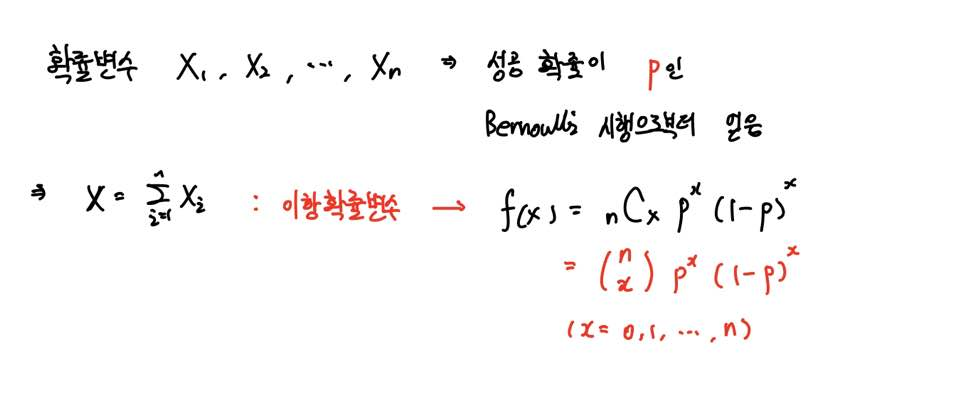 확률변수 X₁, X₂, ⋯, Xₙ ⇒ 성공 확률이 p인
Bernoulli 시행으로부터 얻음
⇒ X = ∑ᵢ₌₁ⁿ Xᵢ : 이항확률변수 → f(x) = ₙCₓ pˣ (1-p)ˣ
= (n x) pˣ (1-p)ˣ
(x = 0, 1, ⋯, n)